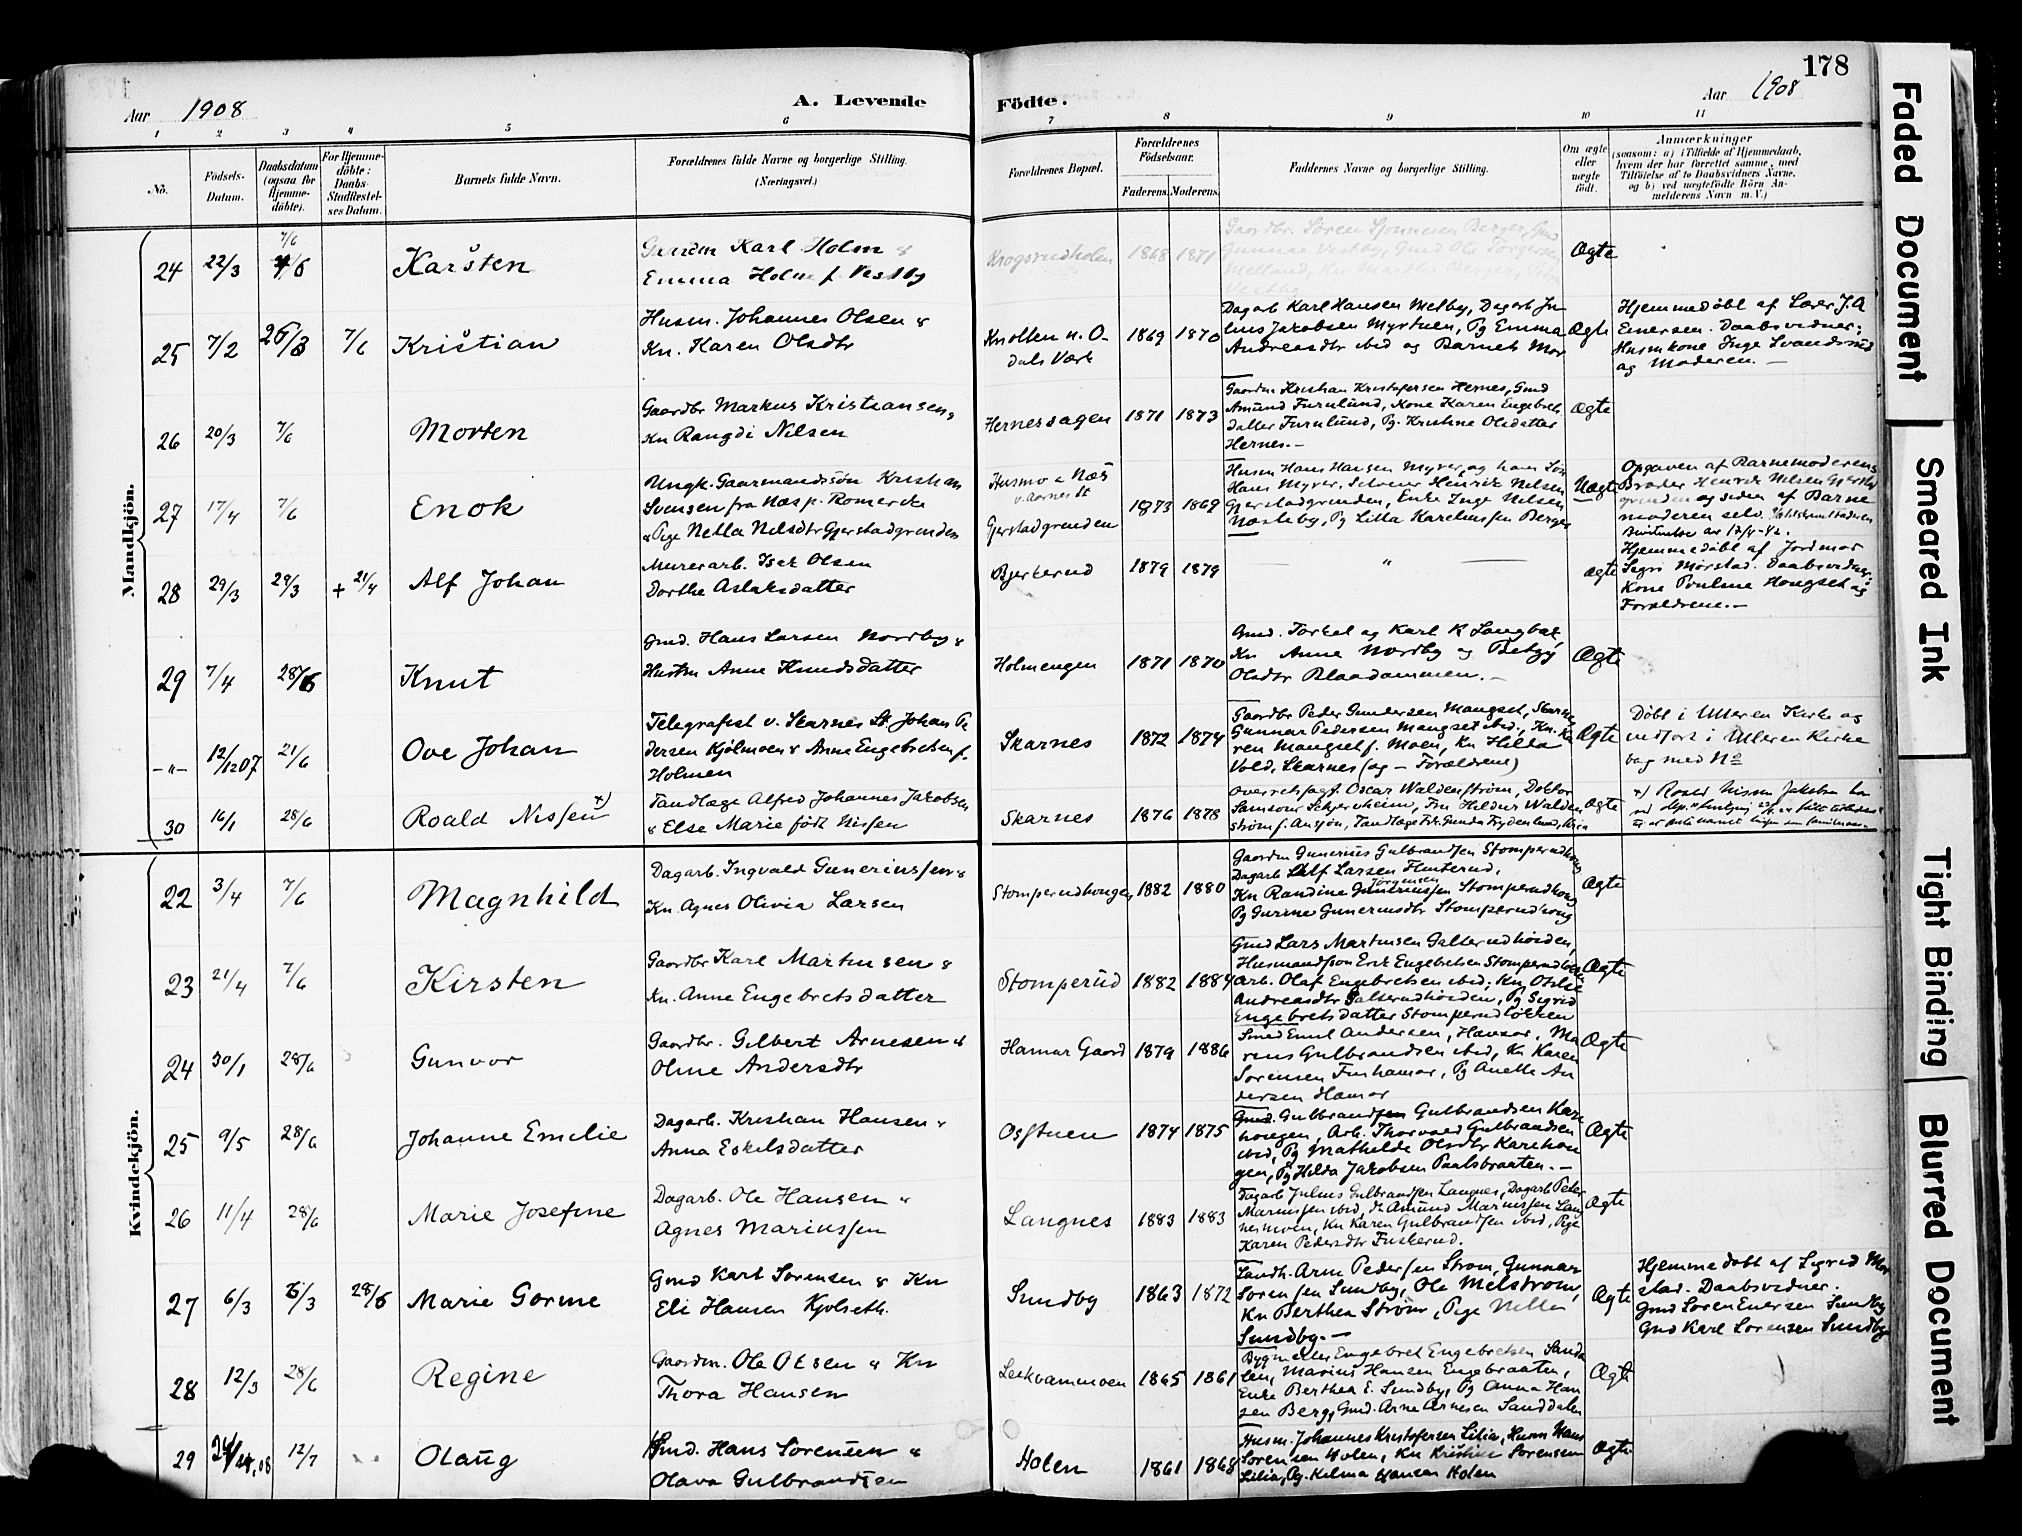 178
Aar 1908
A. Levende
Födte.
Aar 1908
1 2 3 4 5 6 7 8 9 10 11
No.
Födsels-
Datum.
Daabsdatum
(ogsaa for
Hjemme-
döbte).
For Hjemme-
döbte:
Daabs-
Stadfæstel-
ses Datum.
Barnets fulde Navn.
Forældrenes fulde Navne og borgerlige Stilling.
(Næringsvei.)
Forældrenes Bopæl.
Forældrenes
Födselsaar.
Faderens. Moderens.
Faddernes Navne og borgerlige Stilling.
Om ægte
eller
uægte
födt.
Anmærkninger
(saasom: a) i Tilfælde af Hjemmedaab,
hvem der har forrettet samme, med
Tilföielse af to Daabsvidners Navne,
og b) ved uegtefödte Börn An-
melderens Navn m. V.)
Mandkjön.
24 22/3 7/6 Karsten
Karl Holm &
Emma Holm f. Vestby
Krogsrudholen 1868 1871
Gaardbr. Sören Berger, Gmd
Gunnar Vestby, Gmd Ole Torgersen
Melland, Kn Marthe Berger, Pige
Vestby
Ægte
25 7/2 7/6 Kristian
Husm. Johannes Olsen &
Kn. Karen Olsdtr
Knollen n. O-
dals Værk 1869 1870
Dagarb Karl Hansen Melby, Dagarb Ju
lius Jakobsen Myrtuen, Pg Emma
Andreasdtr ibid og Barnets Mor
Ægte
Hjemmedøbt af Lærer J. A
Einersen. Daabsvidner:
Huskone Inge
og Moderen. —
26 20/3 7/6 Morten
Gaardbr Markus Kristiansen &
Kn Rangdi Nilsen
Hernessagen 1871 1873
Gaardm Kristian Kristofersen Hernes, Gmd
Amund Furulund, Kone Karen Engebrets
datter Furulund, Pg. Kristine Olsdatter
Hernes. —
Ægte
27 17/4 7/6 Enok
Ungk. Gaarmandssön Kristian
Svensen fra Næs p. Romerike
& Pige Netta Nilsdtr Gjerstadgrenden
Husmo i Næs
v. Aarnes St
Gjerstadgrenden 1873 1869
Husm Hans Hansen Myrer, og hans Sön
Hans Myrer, Selveier Henrik Nilsen
Gjerstadgrenden, Enke Inge Nilsen
Næsteby, Pg Lilla Kareliussen Berger
Uægte
Opgaven af Barnemoderens
Broder Henrik Nilsen Gjerstad
grenden og siden af Barne
moderen selv.
28 29/3 29/3 + 21/4 Alf Johan
Murerarb. Isak Olsen
Dorthe Aslaksdatter
Bjerkerud 1879 1879
— " —
ægte
Hjemmedøbt af Jordmor
Sigri Mørstad. Daabsvidner:
Kone Pauline Hongset og
Forældrene. —
29 7/4 28/6 Knut
Gmd. Hans Larsen Nordby &
Hustru Anne Knudsdatter
Holmengen 1871 1870
Gmd. Torkel og Karl K Langbak,
Kn Anne Nordby og Betzy
Olsdtr Blaadammen. —
Ægte
— " — 12/12 07 21/6 Ove Johan
Telegrafist v. Skarnes St. Johan Pe
dersen Kjølmoen & Anne Engebretsen f.
Holmen
Skarnes 1872 1874
Gaardbr Peder Gundersen Mangset, Skarnes
Gunnar Pedersen Mangset ibid., Kn. Ka
ren Mangset f. Moen, Kn Hilda
Vold, Skarnes (og — Forældrene)
Ægte
Døbt i Ulleren Kirke og
indført i Ulleren Kirke
bog med No
30 16/1 28/6 Roald Nissen x)
Tandlæge Alfred Johannes Jakobsen
& Else Marie født Nissen
Skarnes 1876 1878
Overretssagf. Oscar Waldenstrøm, Doktor
Samson Schjervheim, Fru Hildur Walden
strøm f. Ansjøn, Tandlæge Frk Gunda Frydenlund,
Ægte
x) Roald Nissen Jakobsen
Kvindekjön.
22 3/4 7/6 Magnhild
Dagarb. Ingvald Gunerinssen &
Kn. Agnes Olivia Larsen
Stomperudhougen 1882 1880
Gaardm Gunerius Gulbrandsen Stomperudhoug
Dagarb Alf Larsen Flinterud,
Jörgensen
Kn Randine Gunerinssen Stomperudhoug
Pg Gurine Guneriusdtr Stomperudhoug
Ægte
23 21/4 7/6 Kirsten
Gaardbr Karl Martinsen &
Kn. Anne Engebretsdatter
Stomperud 1882 1884
Gmd Lars Martinsen Galterudhöiden,
Husmandssön Erik Engebretsen Stomperudløkken
Arb. Olaf Engebretsen ibid; Kn Otilie
Andreasdtr Galterudhöiden, Pg Sigrid
Engebretsdatter Stomperudløkken
Ægte
24 30/1 28/6 Gunvor
Gaardbr. Gilbert Arnesen &
Oline Andersdtr
Hamar Gaard 1879 1886
Smed Emil Andersen, Hamar, Ma
rius Gulbrandsen ibid, Kn Karen
Sorensen Furhamar, Pg Anette An
dersen Hamar
Ægte
25 9/5 28/6 Johanne Emelie
Dagarb. Kristian Hansen &
Anna Eskelsdatter
Osstuen 1874 1875
Gmd. Gulbrandsen Gulbrandsen Kare
hougen, Arb. Thorvald Gulbrandsen
ibid, Pg Mathilde Olsdtr Karehou
gen, Pg Hilda Jakobsen Paalsbraaten. —
Ægte
26 11/4 28/6 Marie Josefine
Dagarb. Ole Hansen &
Agnes Mariussen
Langnes 1883 1883
Dagarb Julius Gulbrandsen Langnes, Dagarb Peter
Mariussen ibid, do Amund Mariussen Lang
nesmoen, Kn Karen Gulbrandsen ibid, Pige
Karen Pedersdtr Fuskerud.
Ægte
27 6/3 6/3 28/6 Marie Gorine
Gmd Karl Sorensen & Kn
Eli Hansen Kjolseth.
Sundby 1863 1872
Landh. Arne Pedersen Strøm, Gunnar
Sorensen Sundby, Ole Melstrom,
Kn Berthea Strøm, Pige Nilla
Sundby. —
Ægte
Hjemmedøbt af Sigrid Mør
stad. Daabsvidner.
Gmd Soren Enersen Sundby
Gmd Karl Sorensen Sundby
28 12/3 28/6 Regine
Gaardm. Ole Olsen & Kn
Thora Hansen
Leekvammoen 1865 1861
Bygmester Engebret Engebretsen Sandda
len, Marius Hansen Engebraaten,
Enke Berthea E. Sundby, Pg Anna Han
sen Berg, Gmd. Arne Arnesen Sanddalen
Ægte
29 24/4, 08 12/7 Olaug
Gmd. Hans Sorensen &
Olava Gulbrandsen
Holen 1861 1868
Husm. Johannes Kristofersen Lilia, Husm Hans
Sorensen Holen, Kn Kristine Sorensen
Lilia, Pg. Helma Hansen Holen
Ægte
Faded Document
Smeared Ink
Tight Binding
Blurred Document